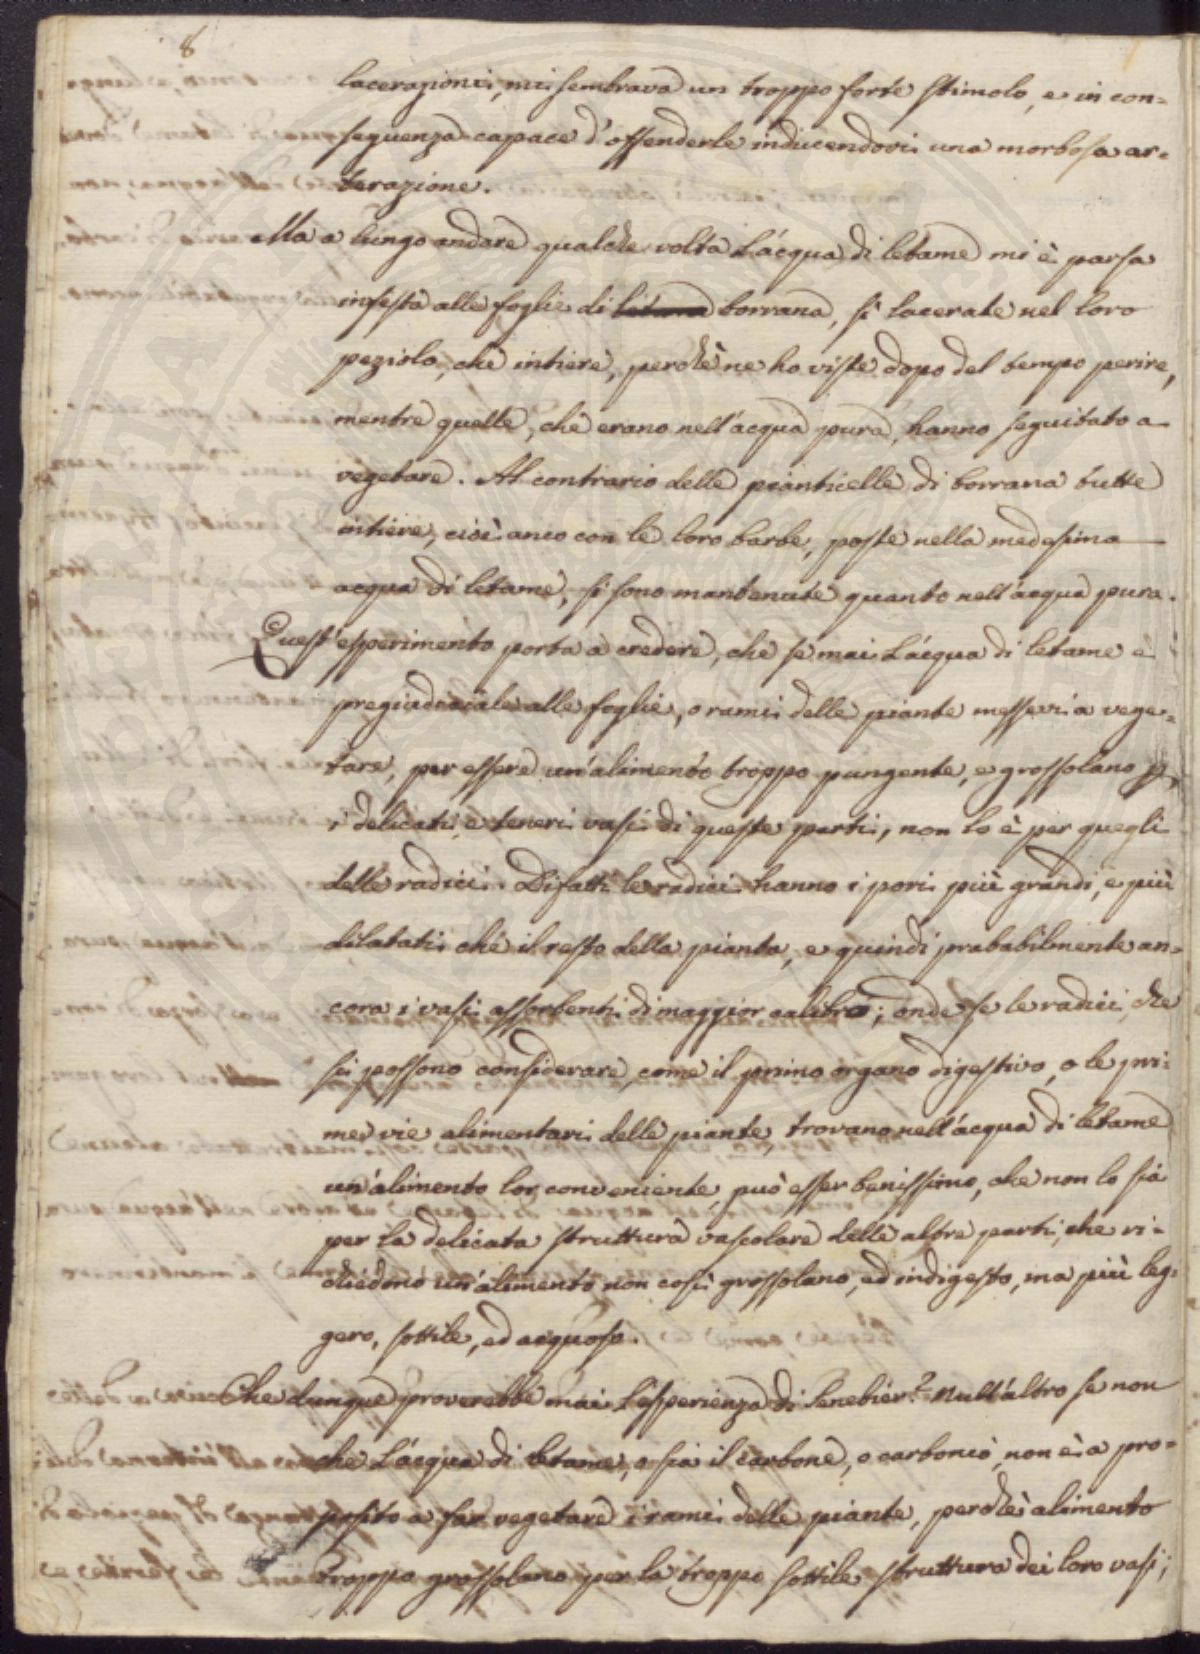 8
lacerazioni, mi sembrava un troppo forte stimolo, e in con=
seguenza capace d'offenderle inducendovi una morbosa ar=
terazione.
Ma a lungo andare qualche volta l'acqua di letame mi è parsa
infesta alle foglie di letame borrana, sì lacerate nel loro
peziolo, che intiere, perchè ne ho viste dopo del tempo perire,
mentre quelle, che erano nell'acqua pura, hanno seguitato a
vegetare. Al contrario delle pianticelle di borrana tutte
intiere, cioè anco con le loro barbe, poste nella medesima
acqua di letame, si sono mantenute quanto nell'acqua pura.
Quest'esperimento porta a credere, che se mai l'acqua di letame è
pregiudiciale alle foglie, o rami delle piante messevi a vege=
tare, per essere un'alimento troppo pungente, e grossolano p.
i delicati, e teneri vasi di queste parti, non lo è per quegli
delle radici. Difatti le radici hanno i pori più grandi, e più
dilatati che il resto della pianta, e quindi prababilmente an=
cora i vasi assorbenti di maggior calibro; onde se le radici, che
si possono considerare, come il primo organo digestivo, o le pri=
me vie alimentari delle piante, trovano nell'acqua di letame
un'alimento lor conveniente, può esser benissimo, che non lo sia
per la delicata struttura vascolare delle altre parti, che ri=
chiedono un'alimento non così grossolano, ed indigesto, ma più leg=
gero, sottile, ed acquoso.
Che dunque proverebbe mai l'esperienza di Senebier? Null'altro se non
che l'acqua di letame, o sia il carbone, o carbonio, non è a pro=
posito a far vegetare i rami delle piante, perchè alimento
troppo grossolano per la troppo sottile struttura dei loro vasi;